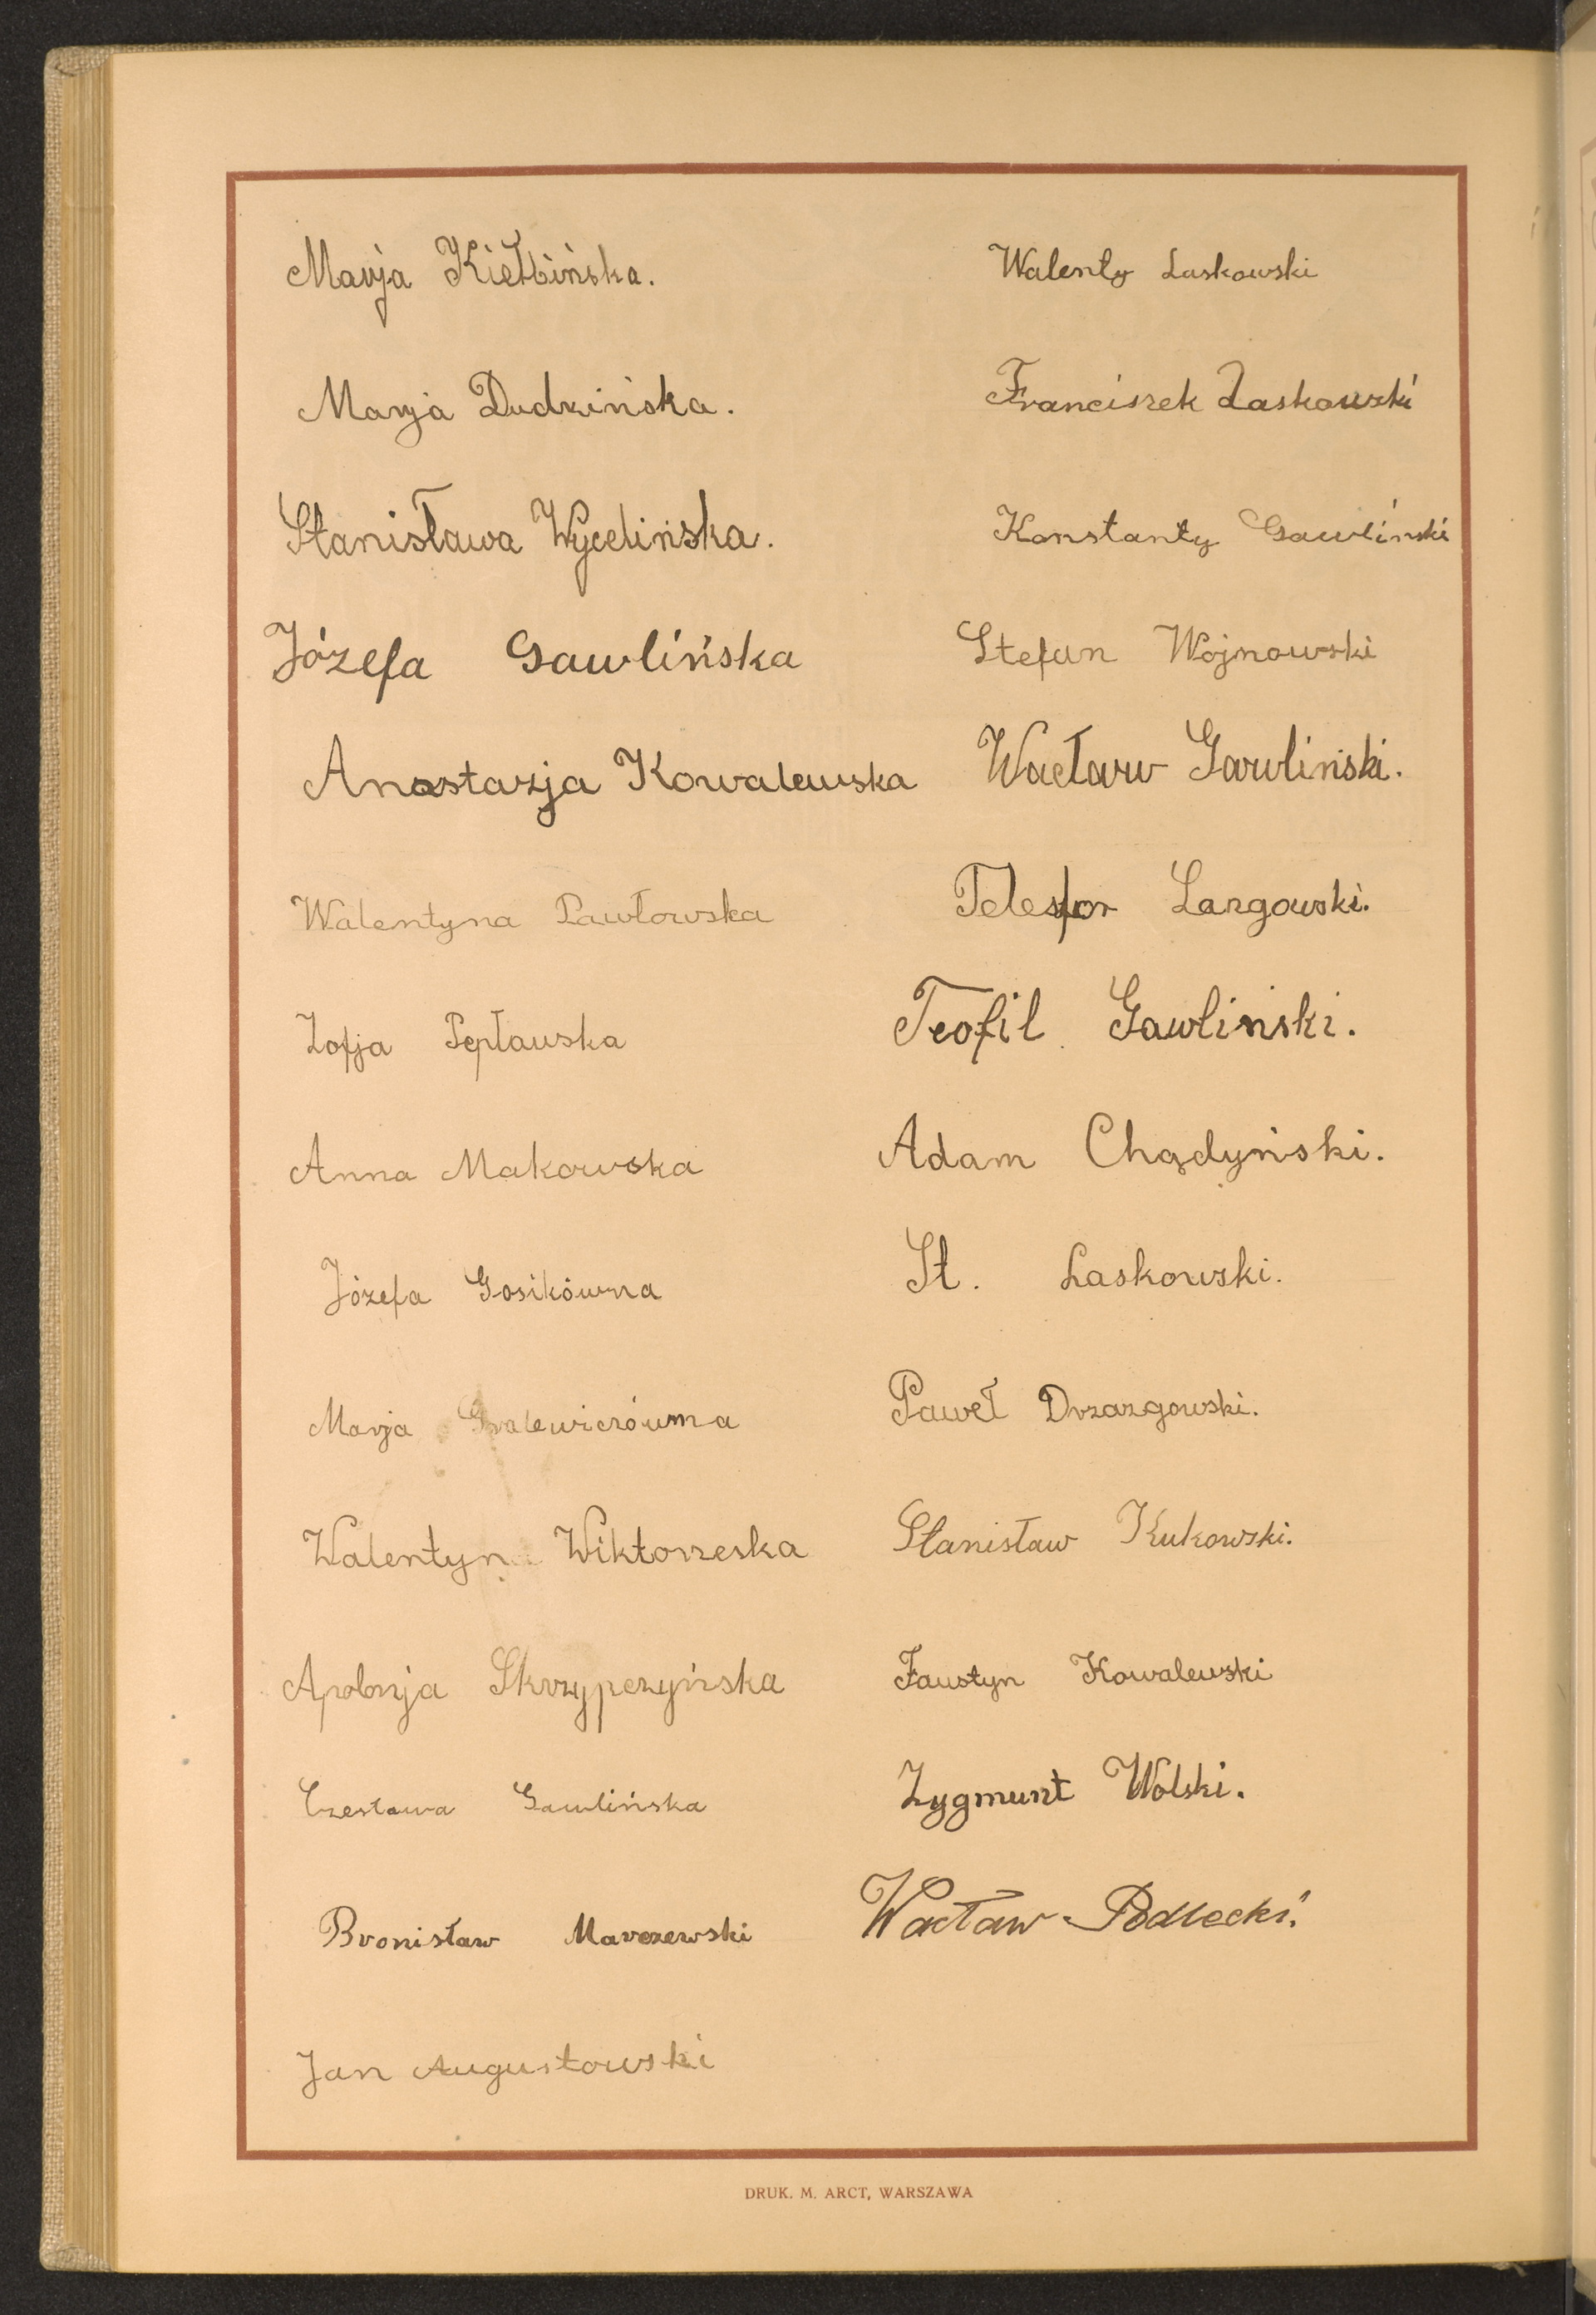 Marja Kiełbińska.
Marja Dudzińska.
Stanisława Wycelińska.
Józefa Gawlińska
Anastazja Kowalewska
Walentyna Pawłowska
Zofja Pepławska
Anna Makowska
Józefa Gosikówna
Marja Gralewiczówna
Walentyna Wiktorzeska
Apolonja Skrzypczyńska
Czesława Gawlińska
Bronisław Marczewski
Jan Augustowski
Walenty Laskowski
Franciszek Laskowski
Konstanty Gawliński
Stefan Wojnowski
Wacław Gawliński.
Telesfor Largowski.
Teofil Gawliński.
Adam Chądyński.
St. Laskowski.
Paweł Drzazgowski.
Stanisław Kukowski.
Faustyn Kowalewski
Zygmunt Wolski.
Wacław Podlecki.
DRUK. M. ARCT, WARSZAWA